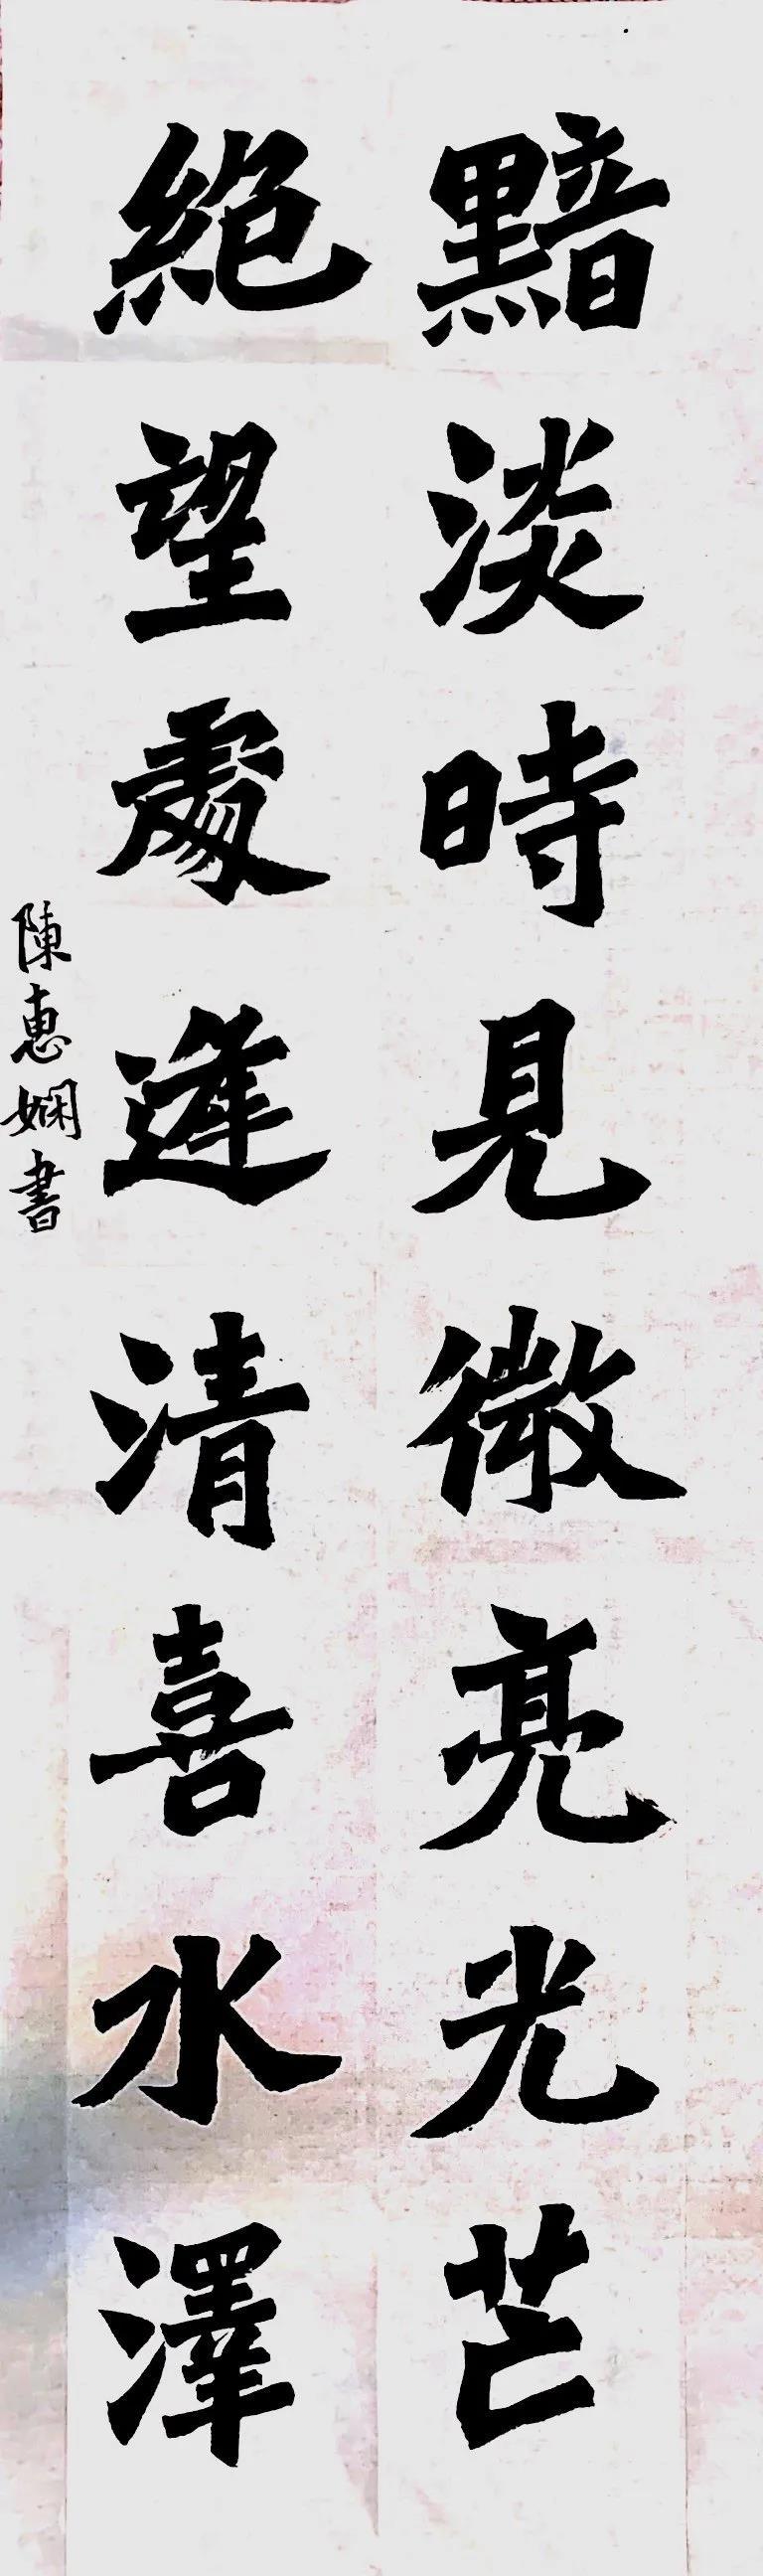 黯淡時見微亮光芒
絕望處逢清喜水澤
陳惠嫻書